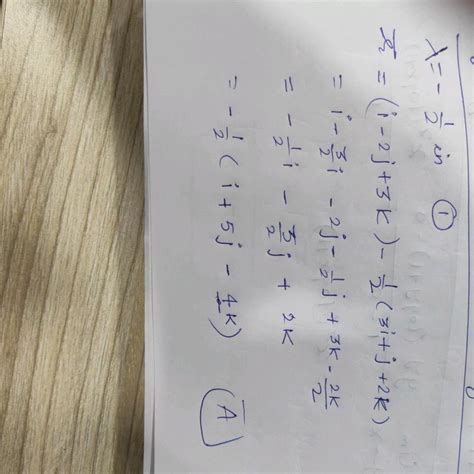 λ = - 1/2 in ①
r₂ = (i - 2j + 3k) - 1/2 (3i + j + 2k)
= i - 3/2 i - 2j - 1/2 j + 3k - 2k/2
= - 1/2 i - 5/2 j + 2k
= - 1/2 ( i + 5j - 4k )
(A)